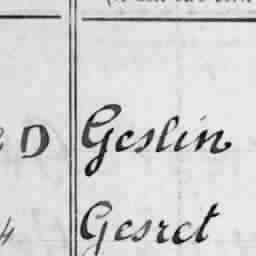 D Geslin
4 Gesret